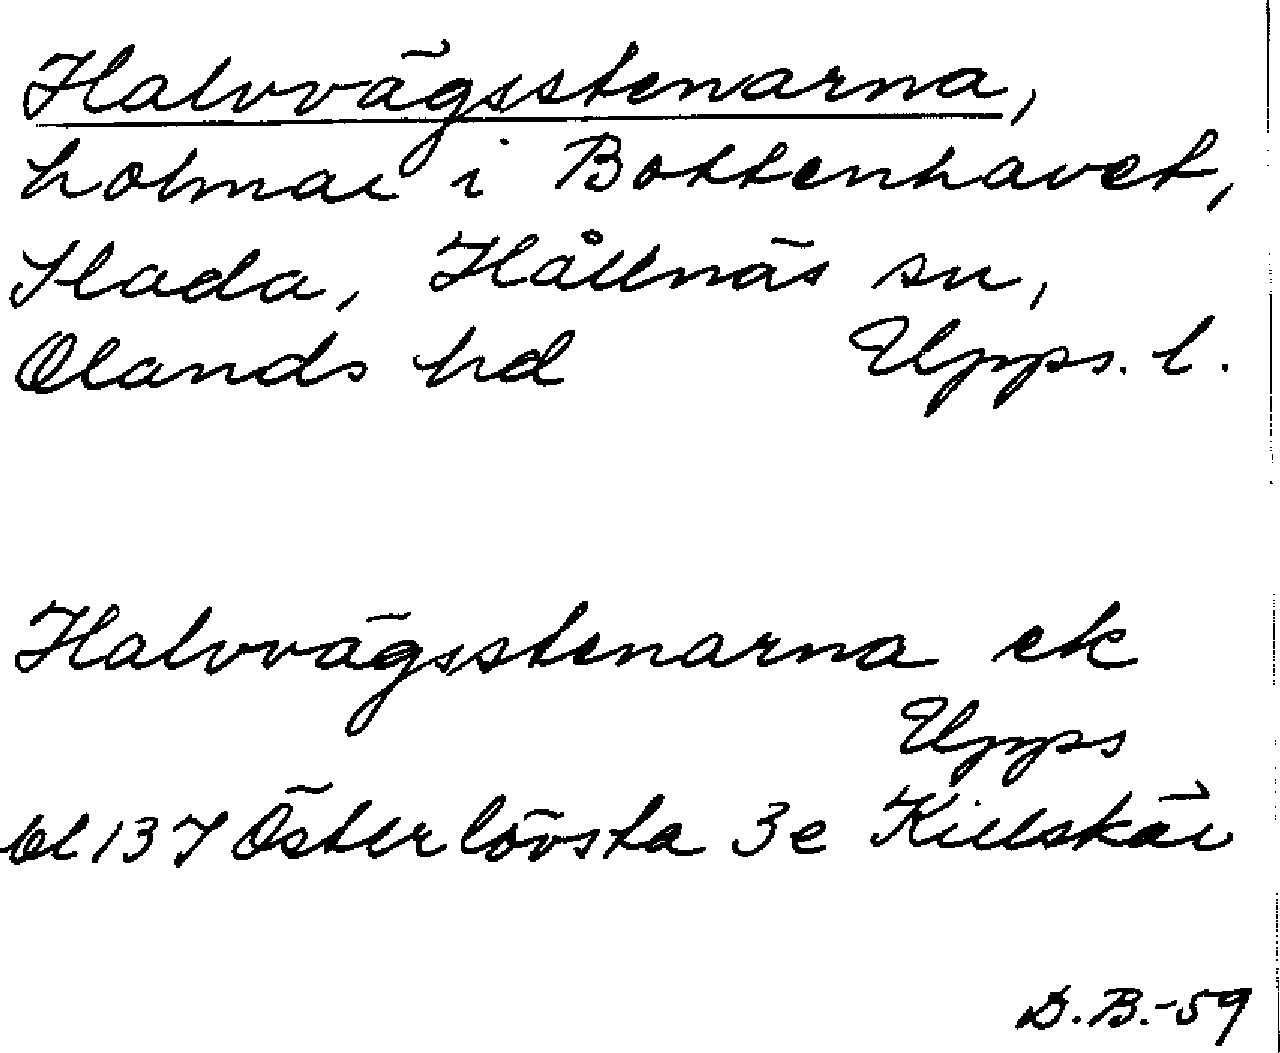 Halvvägsstenarna,
holmar i Bottenhavet,
Slada, Hållnäs sn,
Olands hd Upps. l.
Halvvägsstenarna ek
Upps
bl 137 Österlövsta 3e Killskär
D.B.-59